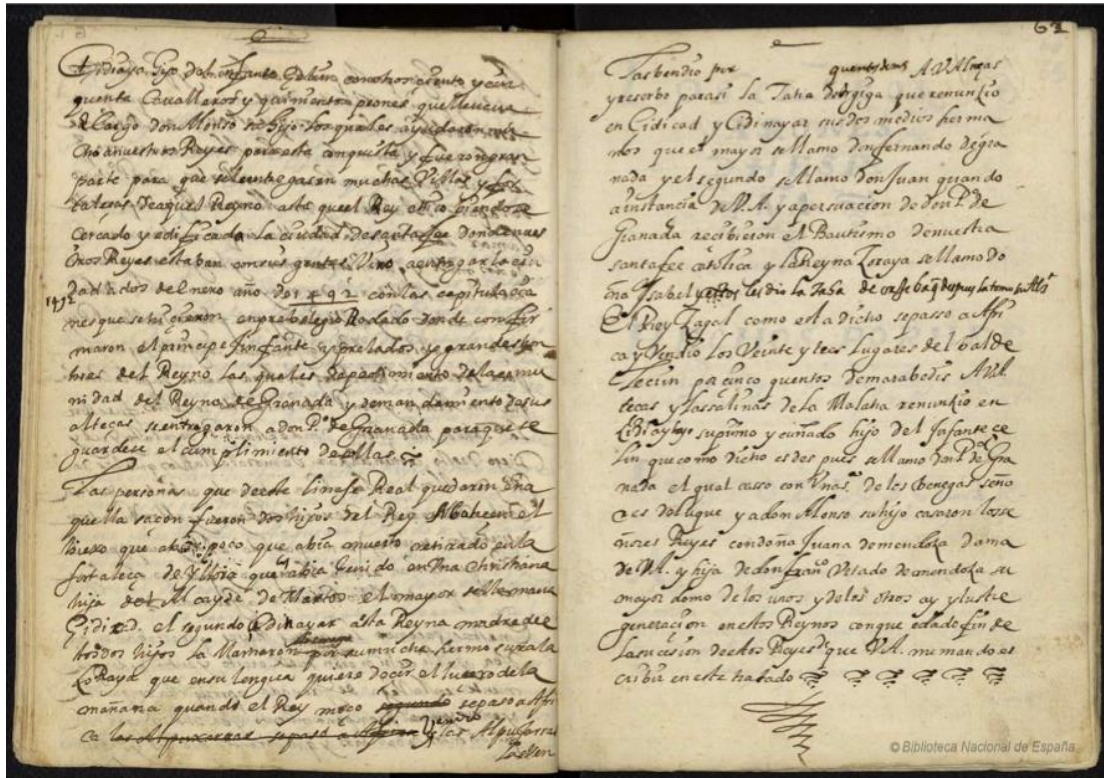 Cidiaya hijo del infante Çelin con otros ciento y cin
quenta Cavalleros y quinientos peones que llevava
a cargo don Alonso su hijo los quales ayudaron mu
cho a nuestros Reyes para esta conquista y fueron gran
parte para que se le entregasen muchas Villas y for
talezas de aquel Reyno asta que el Rey chico viendose
Cercado y edificada la ciudad de santa fee donde nues
tros Reyes estaban con sus gentes Vino a entregar la ciu
1492
dad a dos de enero año de 1492 con las capitulacio
nes que se hicieron en prebilegio Rodado donde confir
maron el principe Infante y prelados y grandes hon
bres del Reyno las quales de pedimiento de la comu
nidad del Reyno de Granada y demandamiento de sus
alteças se entregaron a don P.º de Granada para que se
guardese el cumplimiento de ellas
Las personas que deeste linaje Real quedaron en a
quella saçon fueron dos hijos del Rey Albohacen el
biexo que abia poco que abia muerto retirado en la
fortaleça de Yllora que abia tenido en Vna Christiana
hija del Alcayde de Martos el mayor se llamava
Cidi zad. el segundo Cidinayar a esta Reyna madre de
estos dos hijos la llamaron por su mucha hermosura la
Zoraya que en su lengua quiere decir el lucero de la
mañana quando el Rey moço segundo se paso a Afri
ca las Alpuxarras se paso a Africa Vendio las Alpujarras
Las ven
62
Las bendio por quentos de mrs A V Alteças
y reserbo para si la Taha de orgiga que renunçio
en Cidicad y Cidinayar sus dos medios herma
nos que el mayor se llamo don fernando de gra
nada y el segundo se llamo don Juan quando
a instancia de V.A. y a persuacion de don P.º de
Granada recibieron el Bautismo de nuestra
santa fee catolica y la Reyna Zoraya se llamo do
ña Isabel y estos les dio la Taha de
El Rey Zagal como esta dicho se passo a Afri
ca y Vendio los Veinte y tres Lugares del balde
Lecrin por cinco quentos de marabedis A V Al
teças y las salinas de la Malaha renunçio en
Cidi ayaya su primo y cuñado hijo del Infante ce
lin que como dicho es despues se llamo don P.º de Gra
nada el qual casso con Vna s.ª de los benegas seño
res de luque y a don Alonso su hijo casaron los se
ñores Reyes con doña Juana de mendoza dama
de V.A. y hija de don fran.co Vrtado de mendoza su
mayordomo de los unos y de los otros ay ylustre
generacion en estos Reynos con que e dado fin de
La sucesion de estos Reyes que V.A. me mando es
cribir en este tratado
© Biblioteca Nacional de España